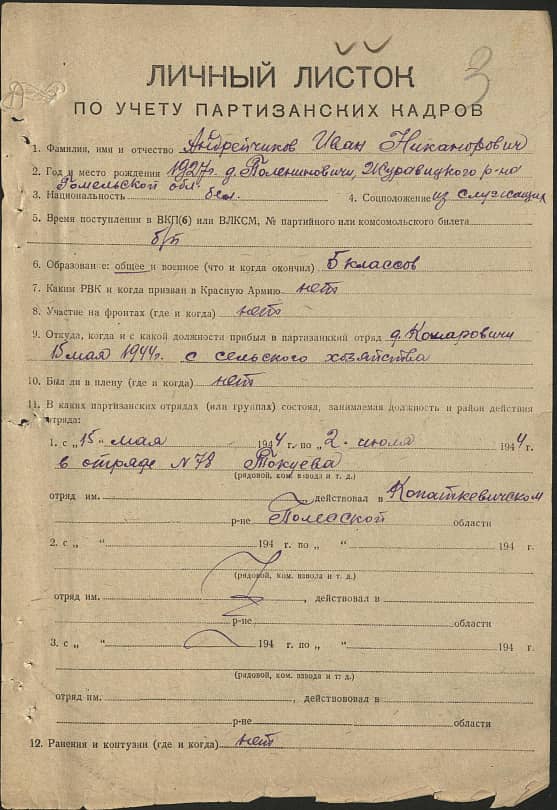 3
ЛИЧНЫЙ ЛИСТОК
ПО УЧЕТУ ПАРТИЗАНСКИХ КАДРОВ
1. Фамилия, имя и отчество Андрейчиков Иван Никанорович
2. Год и место рождения 1927г. д. Журавицкого р-на
Гомельской обл.
3. Национальность бел. 4. Соцположение из служащих
5. Время поступления в ВКП(б) или ВЛКСМ, № партийного или комсомольского билета
б/п
6. Образование: общее и военное (что и когда окончил) 5 классов
7. Каким РВК и когда призван в Красную Армию нет
8. Участие на фронтах (где и когда) нет
9. Откуда, когда и с какой должности прибыл в партизанкий отряд д. Комаровичи
15 мая 1944г. с сельского хозяйства
10. Был ли в плену (где и когда) нет
11. В каких партизанских отрядах (или группах) состоял, занимаемая должность и район действия
отряда:
1. с „15" мая 1944 г. по „2" июля 1944 г.
в отряде №78 Токуева
(рядовой, ком. взвода и т. д.)
отряд им. , действовал в Копаткевичском
р-не Полесской области
2. с „ " 194 г. по „ " 194 г.
(рядовой, ком. взвода и т. д.)
отряд им. , действовал в
р-не области
3. с „ " 194 г. по „ " 194 г.
(рядовой, ком. взвода и т. д.)
отряд им. , действововал в
р-не области
12. Ранения и контузии (где и когда) нет